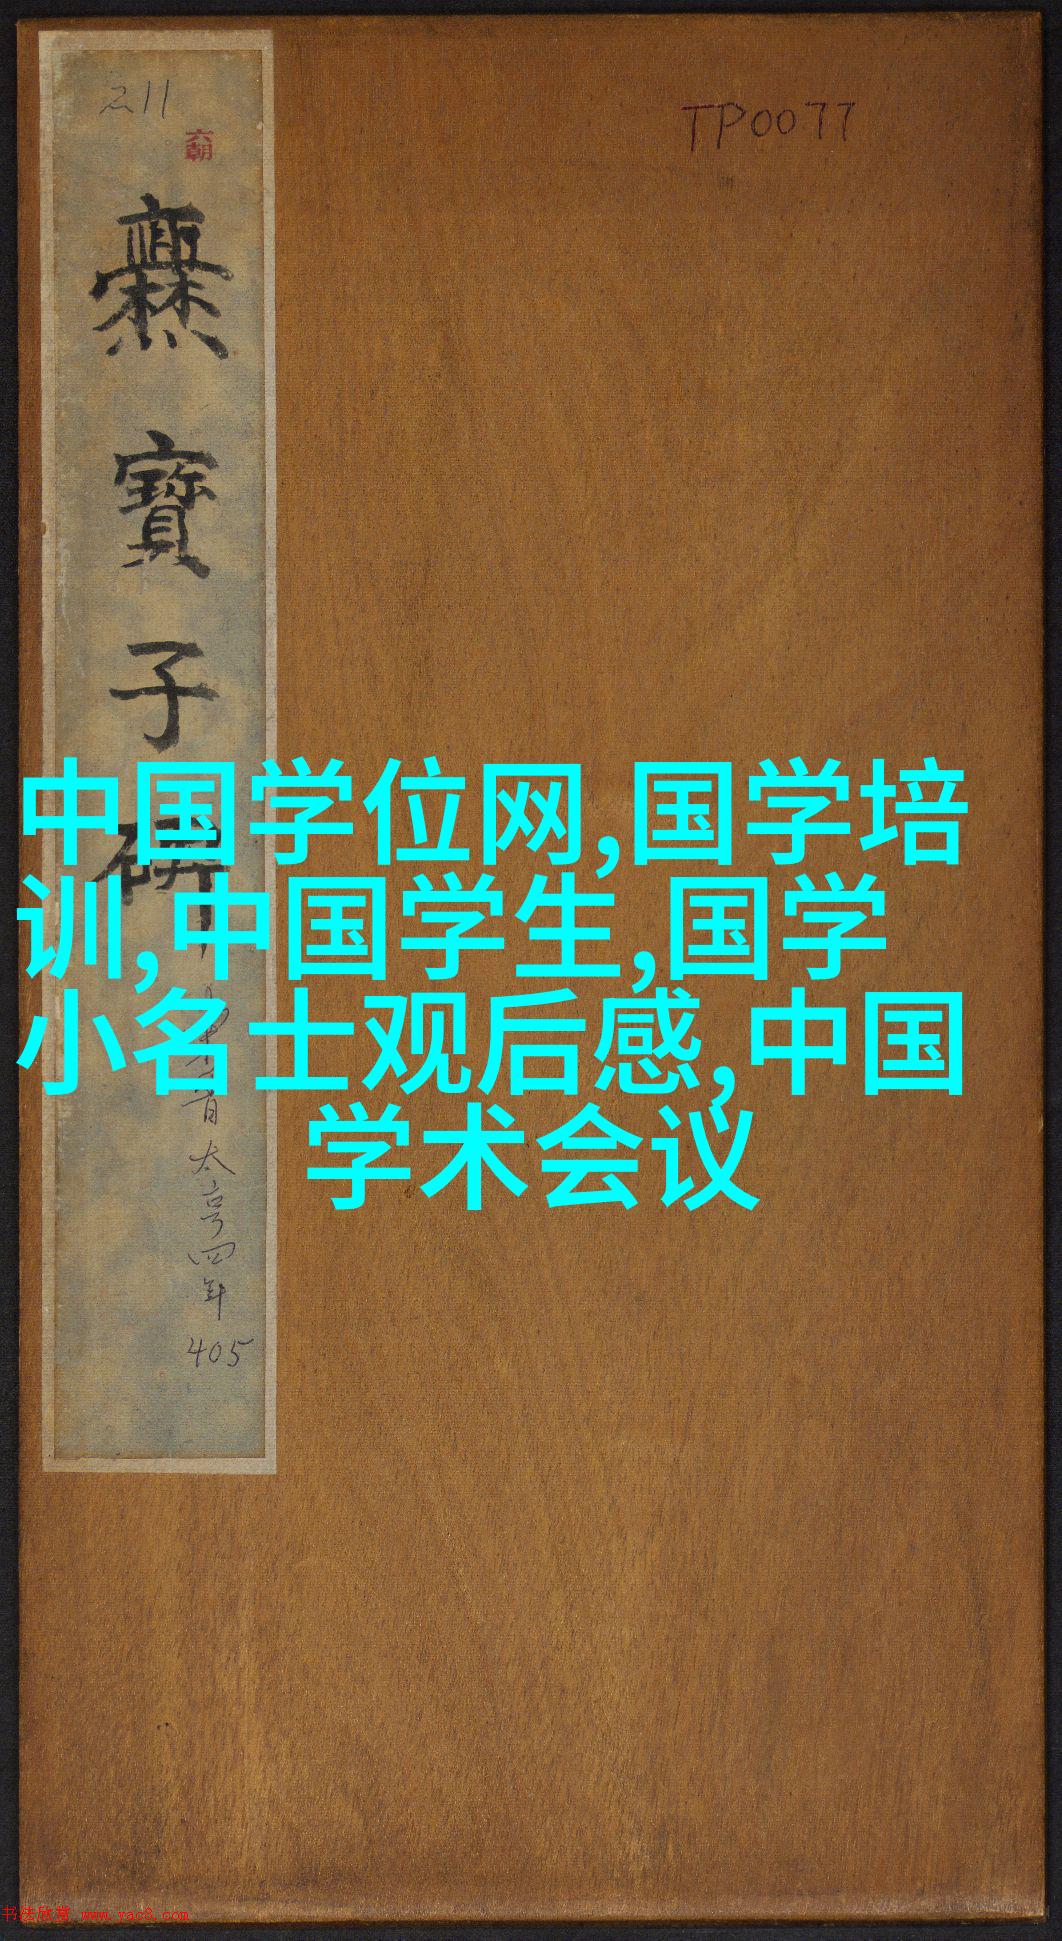 211
TP0077
六朝
爨寶子碑
中国学位网,国学培
训,中国学生,国学
小名士观后感,中国
学术会议
太亨四年
405
书法欣赏 www.yac8.com